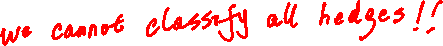 We cannot classify all hedges!!